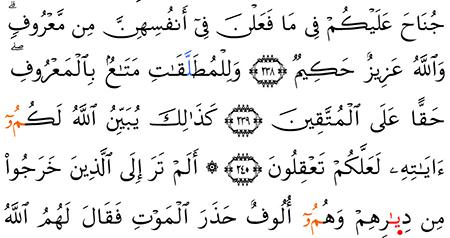 جُنَاحَ عَلَيْكُمْ فِي مَا فَعَلْنَ فِيٓ أَنفُسِهِنَّ مِن مَّعْرُوفٍۗ
وَاللَّهُ عَزِيزٌ حَكِيمٌ ﴿٢٣٨﴾ وَلِلْمُطَلَّقَٰتِ مَتَٰعُۢ بِالْمَعْرُوفِۖ
حَقًّا عَلَى الْمُتَّقِينَ ﴿٢٣٩﴾ كَذَٰلِكَ يُبَيِّنُ اللَّهُ لَكُمُۥٓ
ءَايَٰتِهِۦ لَعَلَّكُمْ تَعْقِلُونَ ﴿٢٤٠﴾ ۞ أَلَمْ تَرَ إِلَى الَّذِينَ خَرَجُواْ
مِن دِيَٰرِهِمْ وَهُمُۥٓ أُلُوفٌ حَذَرَ الْمَوْتِ فَقَالَ لَهُمُ اللَّهُ